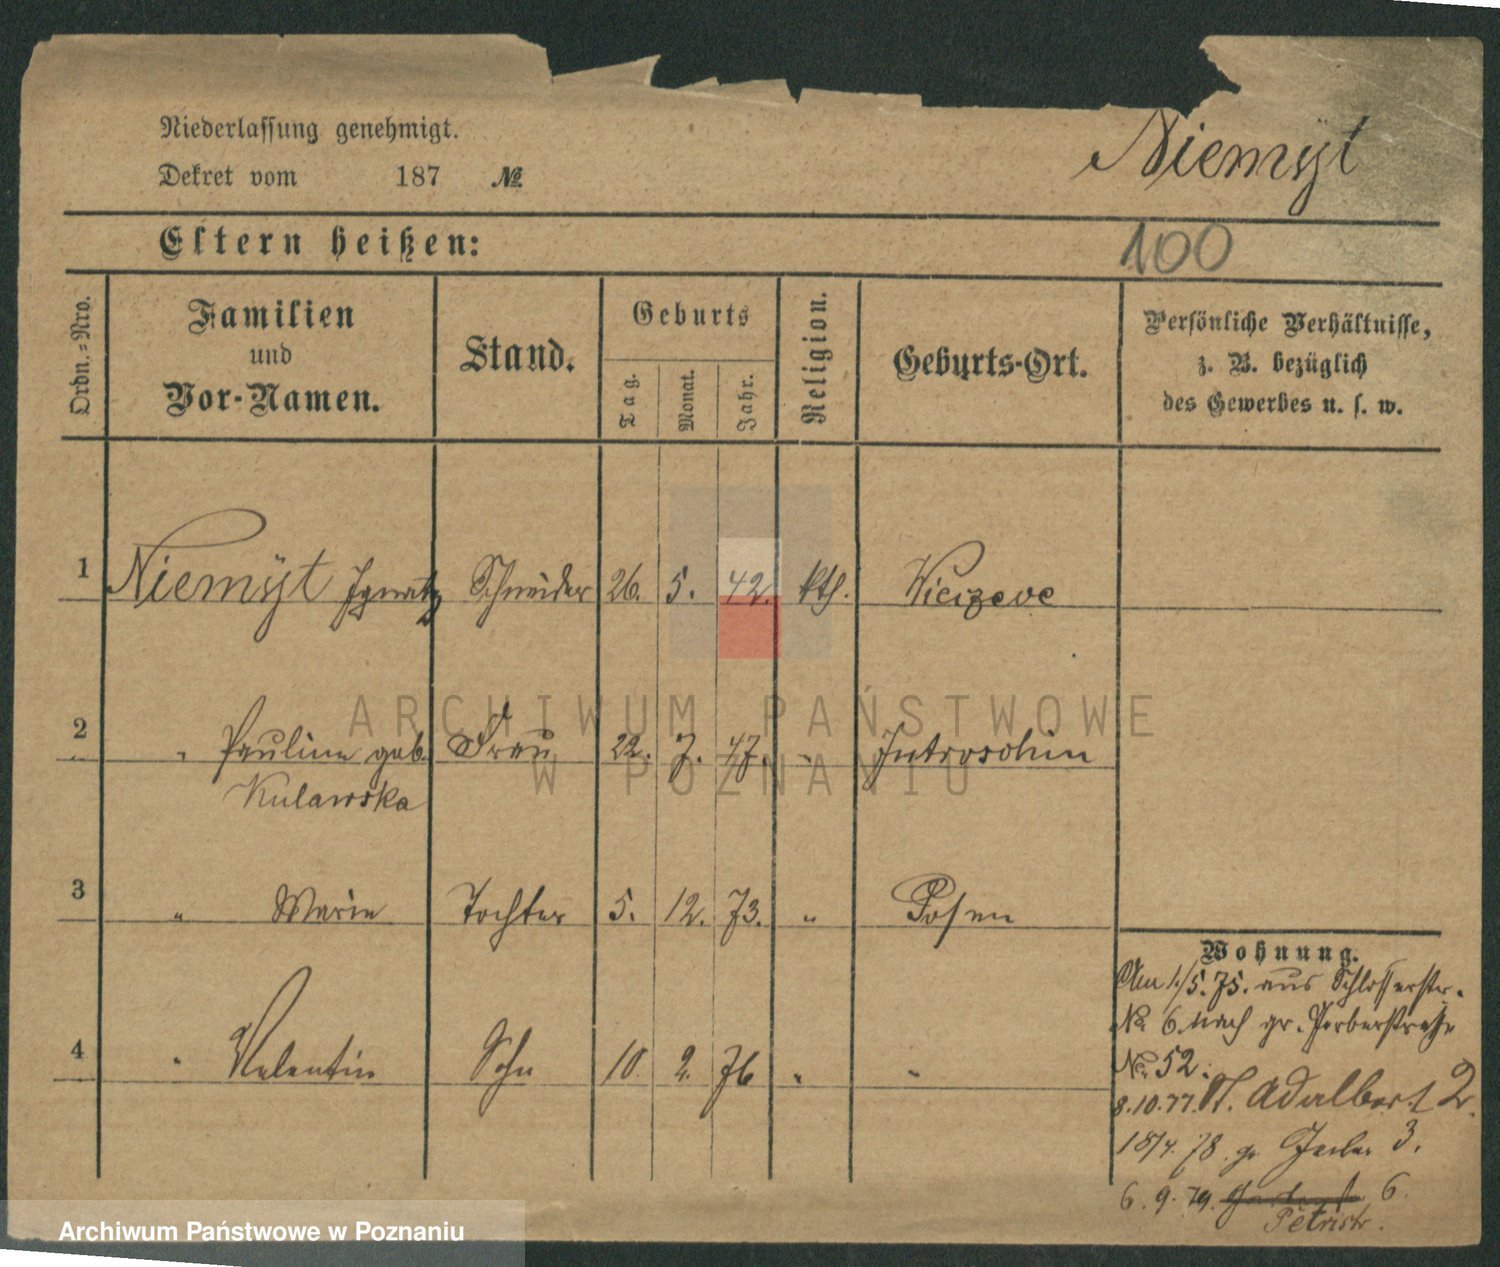 Niederlassung genehmigt.
Dekret vom 187 №
Niemÿt
Eltern heißen:
100
Ordn.-Nro.
Familien
und
Vor-Namen.
Stand.
Geburts
Tag.
Monat.
Jahr.
Religion.
Geburts-Ort.
Persönliche Verhältnisse,
z. B. bezüglich
des Gewerbes u. s. w.
1 Niemÿt Ignatz Schneider 26. 5. 42. kth. Wieczewe
2 " Pauline geb. Frau 22. 7. 47. " Jutroschin
Kulawska
3 " Marie Tochter 5. 12. 73. " Posen
4 " Valentin Sohn 10 2. 76 " "
Wohnung.
Am 1./5. 75. aus Schlosserstr.
No 6 nach gr. Gerberstraße
No. 52.
8.10.77. St. Adalbert 2.
18/4. 78. gr Gerber 3.
6. 9. 79. 6.
Petristr.
ARCHIWUM PAŃSTWOWE
W POZNANIU
Archiwum Państwowe w Poznaniu